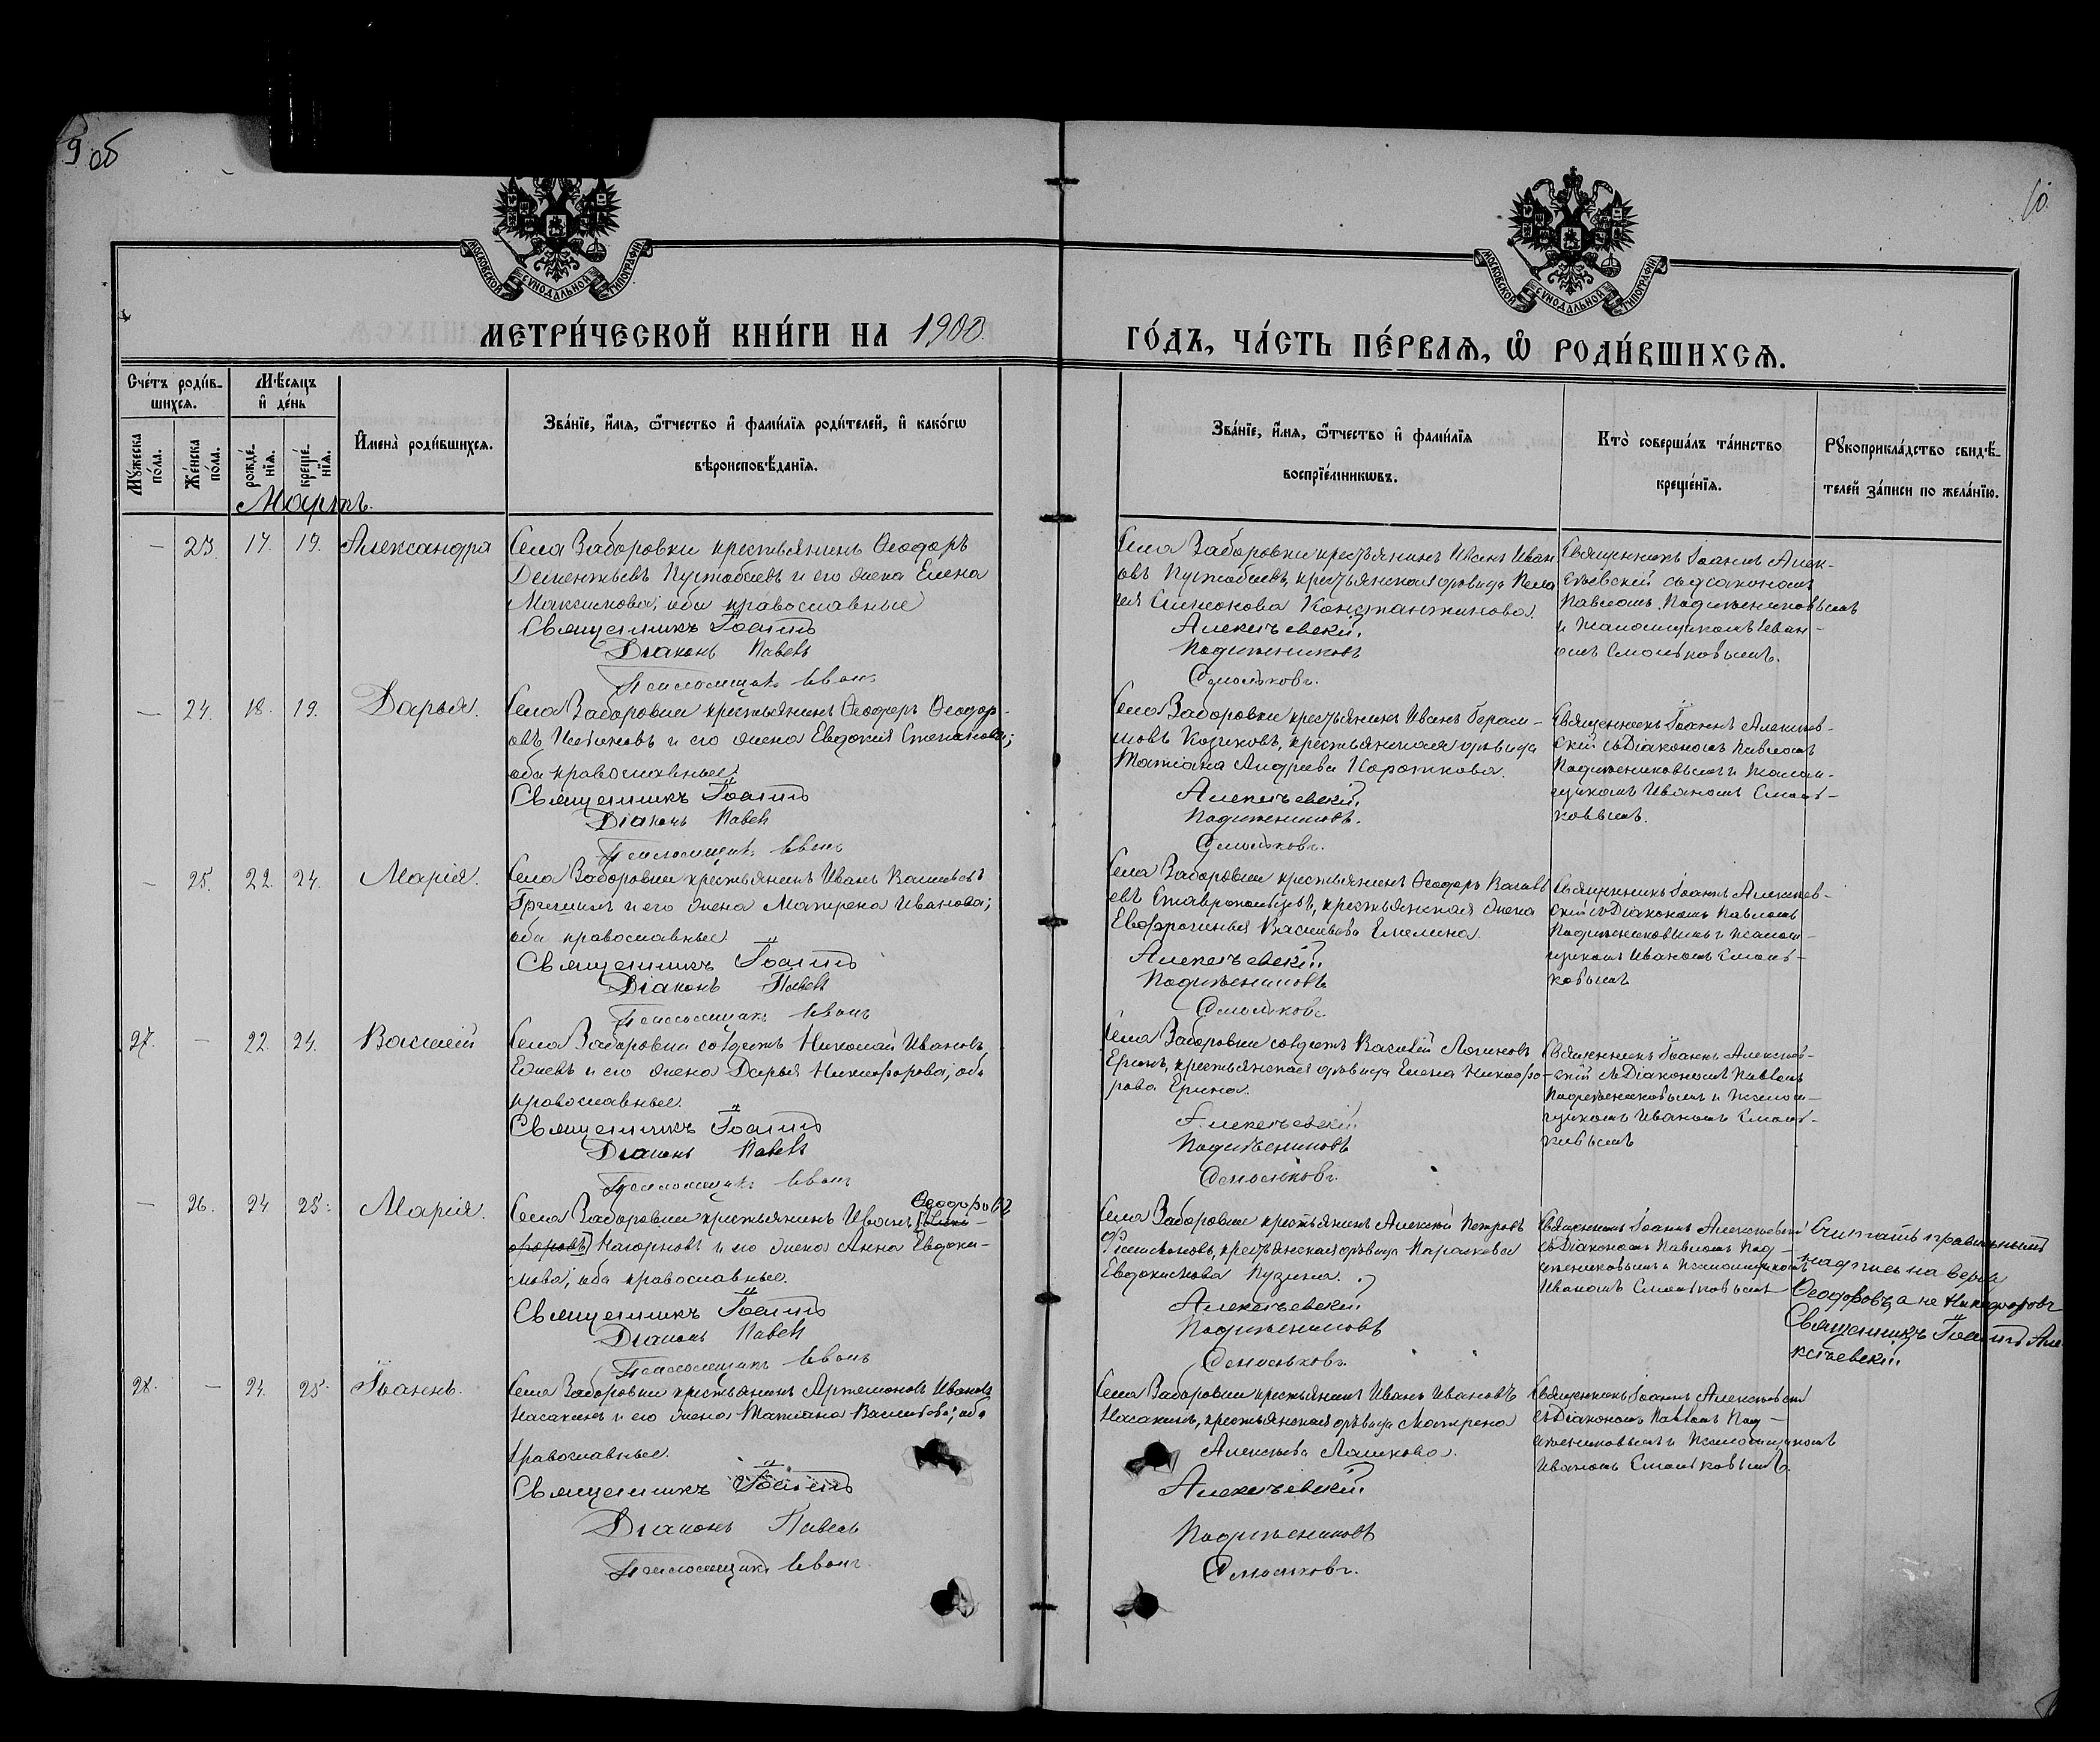 9 об
10
МОСКОВСКОЙ СѴНОДАЛЬНОЙ ТИПОГРАФІИ
МОСКОВСКОЙ СѴНОДАЛЬНОЙ ТИПОГРАФІИ
МЕТРИ́ЧЕСКОЙ КНИ́ГИ НА 1900.
ГО́ДЪ, ЧА́СТЬ ПЕ́РВАѦ, Ѡ҆ РОДИ́ВШИХСѦ.
Сче́тъ роди́в-
шихсѧ.
Мꙋ́жеска по́ла.
Же́нска по́ла.
Мѣ́сѧцъ и҆ де́нь
рожде́-
нїѧ.
креще́-
нїѧ.
И҆мена̀ роди́вшихсѧ.
Зва́нїе, и҆́мѧ, ѻ҆́тчество и҆ фами́лїѧ роди́телей, и҆ како́гѡ
вѣроисповѣ́данїѧ.
Зва́нїе, и҆́мѧ, ѻ҆́тчество и҆ фами́лїѧ
воспрїе́мникѡвъ.
Кто̀ соверша́лъ та́инство
креще́нїѧ.
Рꙋкоприкла́дство свидѣ́-
телей за́писи по жела́нїю.
Мартъ.
— 23. 17. 19. Александра
Села Заборовки крестьянинъ Ѳеодоръ
Дементьевъ Пустобаевъ и его жена Елена
Максимова; оба православные
Священникъ Іоаннъ
Діаконъ Павелъ
Псаломщикъ Иванъ
Села Заборовки крестьянинъ Иванъ Иван
овъ Пустобаевъ, крестьянская дѣвица Пела
гея Симонова Константинова.
Алексѣевскій.
Подпѣнниковъ
Смольковъ.
Священникъ Іоаннъ Алек-
сѣевскій съ діакономъ
Павломъ
и псаломщикомъ Иван-
омъ Смольковымъ.
— 24. 18. 19. Дарья.
Села Заборовки крестьянинъ Ѳеодоръ Ѳеодор-
овъ и его жена Евдокия Степанова;
оба православные.
Священникъ Іоаннъ
Діаконъ Павелъ
Псаломщикъ Иванъ
Села Заборовки крестьянинъ Иванъ Гераси-
мовъ Козиковъ, крестьянская дѣвица
Татіана Андреева Короткова.
Алексѣевскій.
Смольковъ.
Священникъ Іоаннъ Алексѣев-
скій съ Діакономъ Павломъ
и псалом-
щикомъ Иваномъ Смоль-
ковымъ.
— 25. 22. 24. Марія.
Села Заборовки крестьянинъ Иванъ Васильевъ
и его жена Матрена Иванова;
оба православные.
Священникъ Іоаннъ
Діаконъ Павелъ
Псаломщикъ Иванъ
Села Заборовки крестьянинъ Ѳеодоръ Василь
евъ Ставропольцевъ, крестьянская жена
Евфросинья Васильева Емелина.
Алексѣевскій.
Смольковъ.
Священникъ Іоаннъ Алексѣев-
скій съ Діакономъ Павломъ
и псалом-
щикомъ Иваномъ Смоль-
ковымъ
27. — 22. 24. Василій
Села Заборовки солдатъ Николай Ивановъ
и его жена Дарья Никифорова; оба
православные.
Священникъ Іоаннъ
Діаконъ Павелъ
Псаломщикъ Иванъ
Села Заборовки солдатъ Василій Логиновъ
Еринъ, крестьянская дѣвица Елена Никифо-
рова Ерина.
Алексѣевскій
Смольковъ.
Священникъ Іоаннъ Алексѣев-
скій съ Діакономъ Павломъ
и псалом-
щикомъ Иваномъ Смоль-
ковымъ
— 26. 24 25. Марія.
Ѳеодоровъ
Села Заборовки крестьянинъ Иванъ [Ники-
форовъ] Нагорновъ и его жена Анна Евдоки-
мова; оба православные.
Священникъ Іоаннъ
Діаконъ Павелъ
Псаломщикъ Иванъ
Села Заборовки крестьянинъ Алексѣй Петровъ
Филимоновъ, крестьянская дѣвица Параскева
Евдокимова Пузина.
Алексѣевскій
Смольковъ.
Священникъ Іоаннъ Алексѣевскій
съ Діакономъ Павломъ
и псаломщикомъ
Иваномъ Смольковымъ
Считать правильнымъ
надпись на верху
Ѳеодоровъ, а не Никифоровъ
Священникъ Іоаннъ Але-
ксѣевскій.
28. — 24. 25. Іоаннъ.
Села Заборовки крестьянинъ Артемонъ Ивановъ
Насакинъ и его жена Татіана Васильева; оба
православные.
Священникъ Іоаннъ
Діаконъ Павелъ
Псаломщикъ Иванъ.
Села Заборовки крестьянинъ Иванъ Ивановъ
Насакинъ, крестьянская дѣвица Матрена
Алексѣева Лашкова.
Алексѣевскій
Смольковъ.
Священникъ Іоаннъ Алексѣевскій
съ Діакономъ Павломъ
и псаломщикомъ
Иваномъ Смольковымъ.